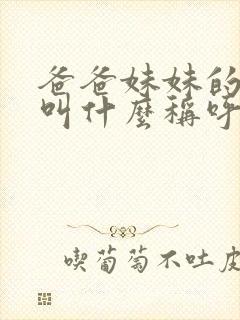 爸爸妹妹的
叫什麼稱呼
喫葡萄不吐皮